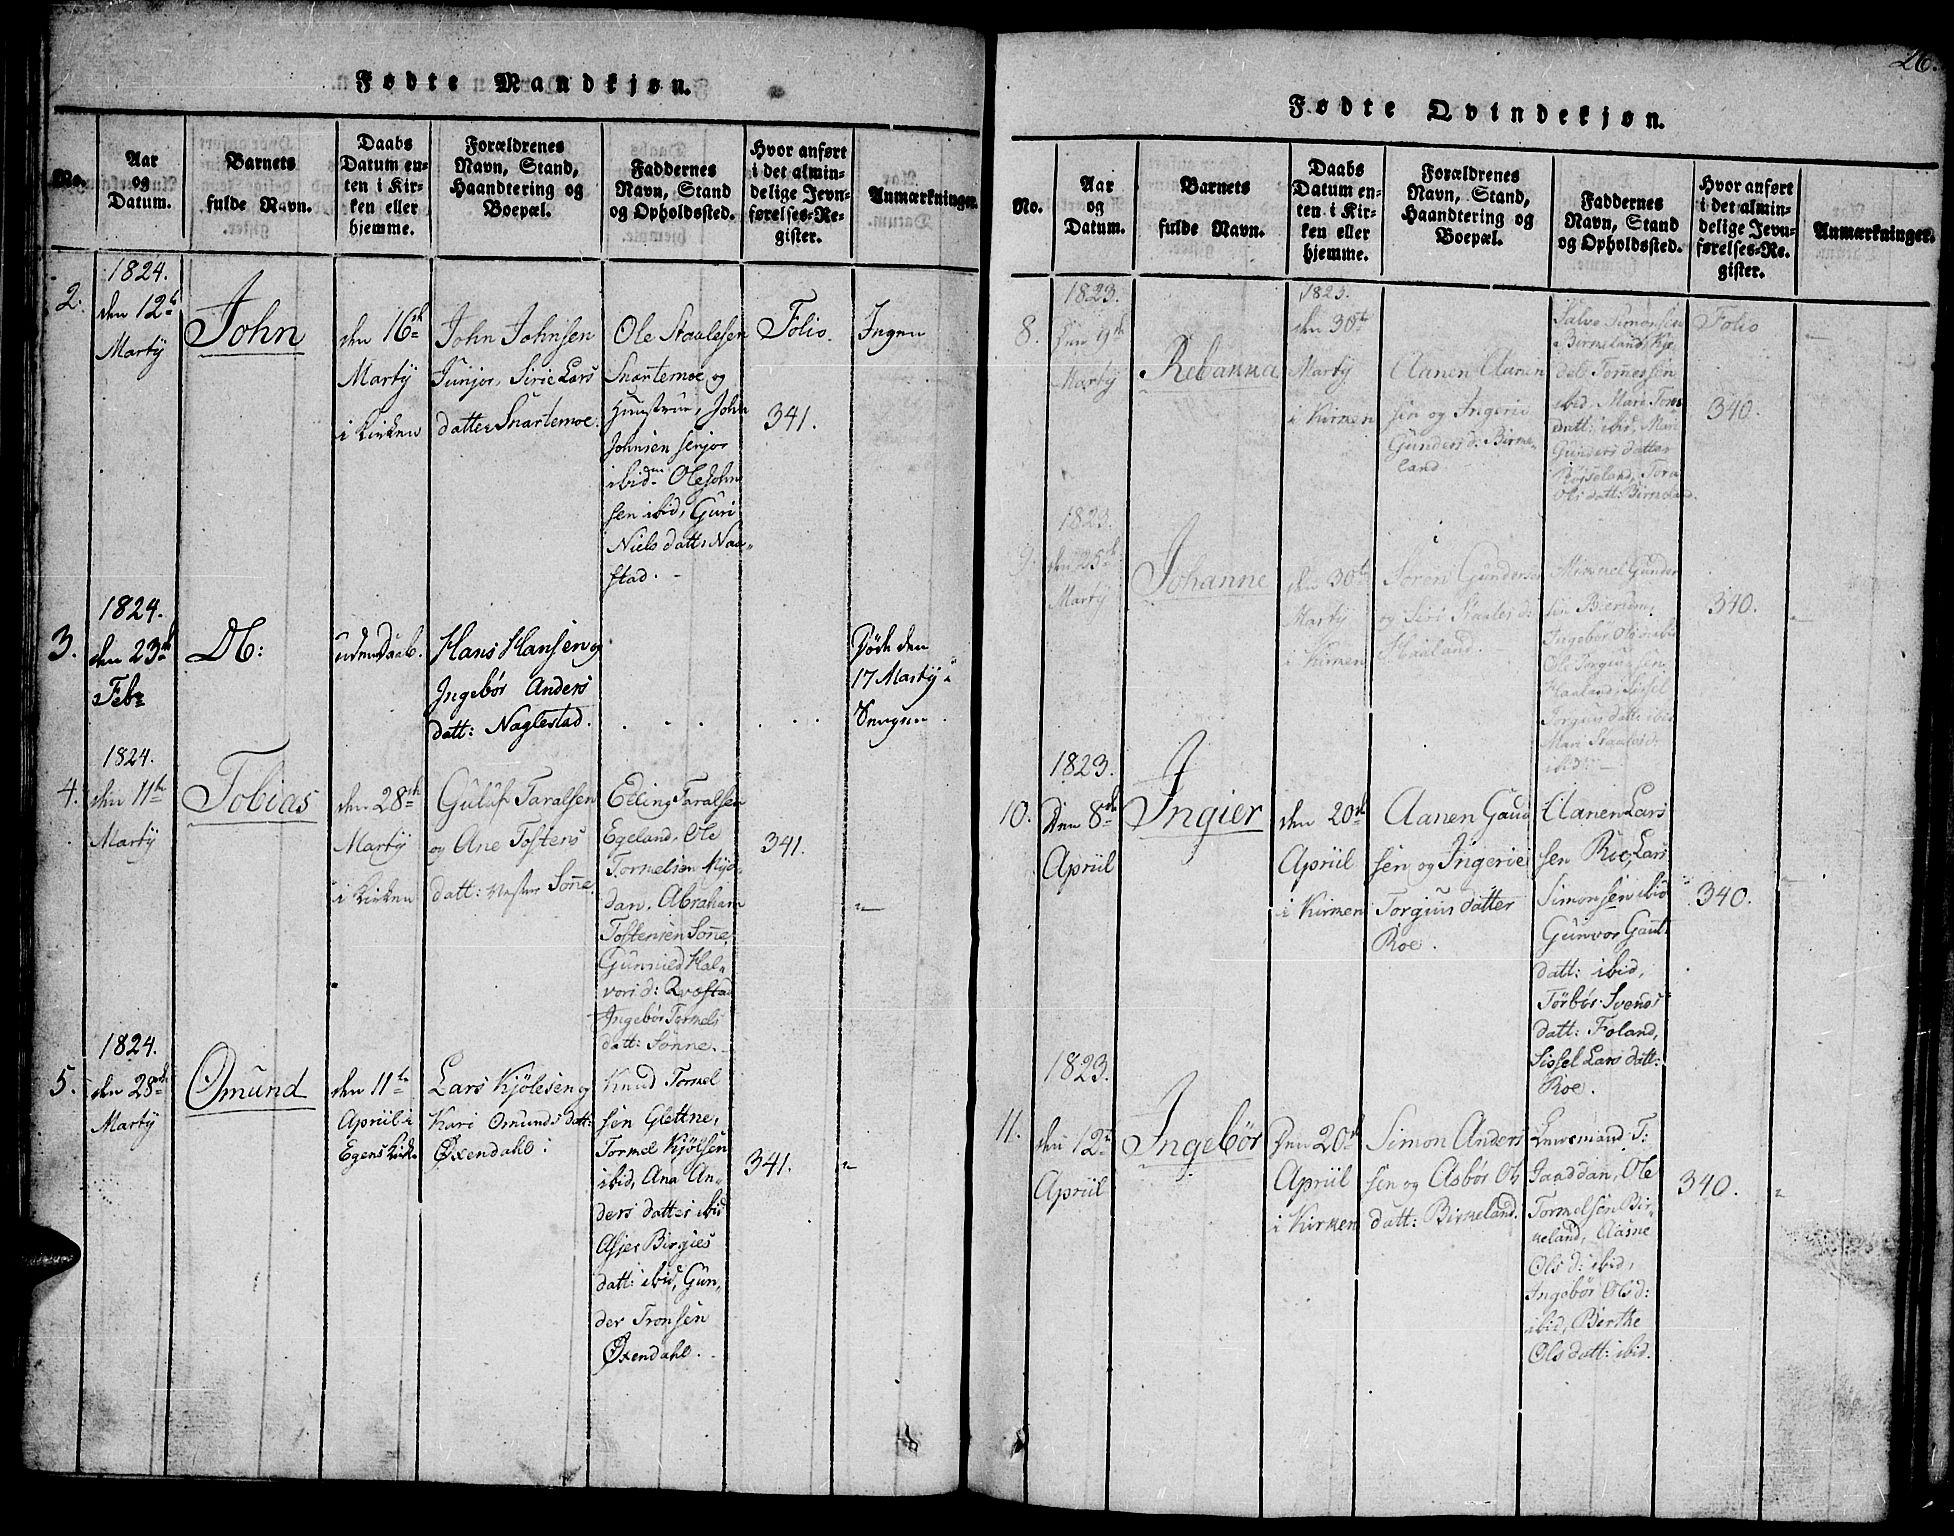 Fødte Mandkjøn.
No.
Aar
og
Datum.
Barnets
fulde Navn.
Daabs
Datum en-
ten i Kir-
ken eller
hjemme.
Forældrenes
Navn, Stand,
Haandtering og
Boepæl.
Faddernes
Navn, Stand
og Opholdssted.
Hvor anført
i det almin-
delige Jevn-
førelses-Re-
gister.
Anmærkninger.
2.
1824.
den 12te
Martÿ
John
den 16de
Martÿ
i Kirken
John Johnsen
Junjor, Sirie Lars
datter Snartemoe.
Ole Staalesen
Snartemoe, og
Hustrue, John
Johnsen senjor
ibidm Ole John
sen ibid, Guri
Niels datt: Naa-
stad.
Folio.
341.
Ingen
3.
1824.
den 23de
Feb
Db:
uden Daab.
Hans Hansen og
Ingebör Anders
datt: Naglestad.
Død den
17 Martÿ
4.
1824.
den 11te
Martÿ
Tobias
den 28de
Martÿ
i Kirken
Guluf Taralsen
og Ane Tostens
datt: Vester Sönne.
Edling Taralsen
Egeland, Ole
Tormelsen
dan, Abraham
Tostensen Sönne,
Gunnild Hal-
vors d: Qvæstad
Ingebör Tormels
datt: Sönne.
341.
5.
1824.
den 28de
Martÿ
Omund
den 11te
Apriil i
Egens Kirk
Lars Kjölesen og
Kari Omunds datt:
Øxendahl:
Knud Tormel
sen Glettne,
Tormel Kjölsen
ibid, Ana An-
ders datter ibid
Asjer Birgies
datt: ibid, Gun-
der Tronsen
Øxendahl.
341.
26.
Fødte Qvindekjøn.
No.
Aar
og
Datum.
Barnets
fulde Navn.
Daabs
Datum en-
ten i Kir-
ken eller
hjemme.
Forældrenes
Navn, Stand,
Haandtering og
Boepæl.
Faddernes
Navn, Stand
og Opholdssted.
Hvor anført
i det almin-
delige Jevn-
førelses-Re-
gister.
Anmærkninger.
8.
1823.
Den 9de
Martÿ
Rebakka
1823.
den 30te
Martÿ
i Kirken
Aanen Aanen
sen og Ingerie
Gunders d: Birke-
land
Salve Simonsen
Birkeland,
Tormelsen
ibid. Mari Torm
datt: ibid, Mari
Gunders datter
Röiseland, Tora
Ols datt: Birkeland.
Folio
340.
9.
1823.
den 25de
Martÿ
Johanne
den 30te
Martÿ
i Kirken
Sören Gundersen
og Siri Staales d:
Haaland.
Mikkel Gunder
sen Bierum,
Ingebör Ols d: ibid
Ole Torgiussen
Haaland, Sissel
Torgius datt: ibid
Mari Staales d:
ibid
340.
10.
1823.
Den 8de
Apriil
Ingier
den 20de
Apriil
i Kirken
Aanen Gaud
sen og Ingerie
Torgius datter
Roe.
Aanen Lars
sen Roe, Lars
Simonsen ibid
Gunvor Gaut
datt: ibid,
Törbör Svends
datt: Foland,
Sissel Lars datt:
Roe.
340.
11.
1823.
den 12te
Apriil
Ingebör
Den 20de
Apriil
i Kirken
Simon Anders
sen og Asbör Ols
datt: Birkeland.
Lensmand T:
Jaaddan, Ole
Tormelsen Bir-
keland, Aasne
Ols d: ibid,
Ingebör Ols d:
ibid, Berthe
Ols datt: ibid.
340.